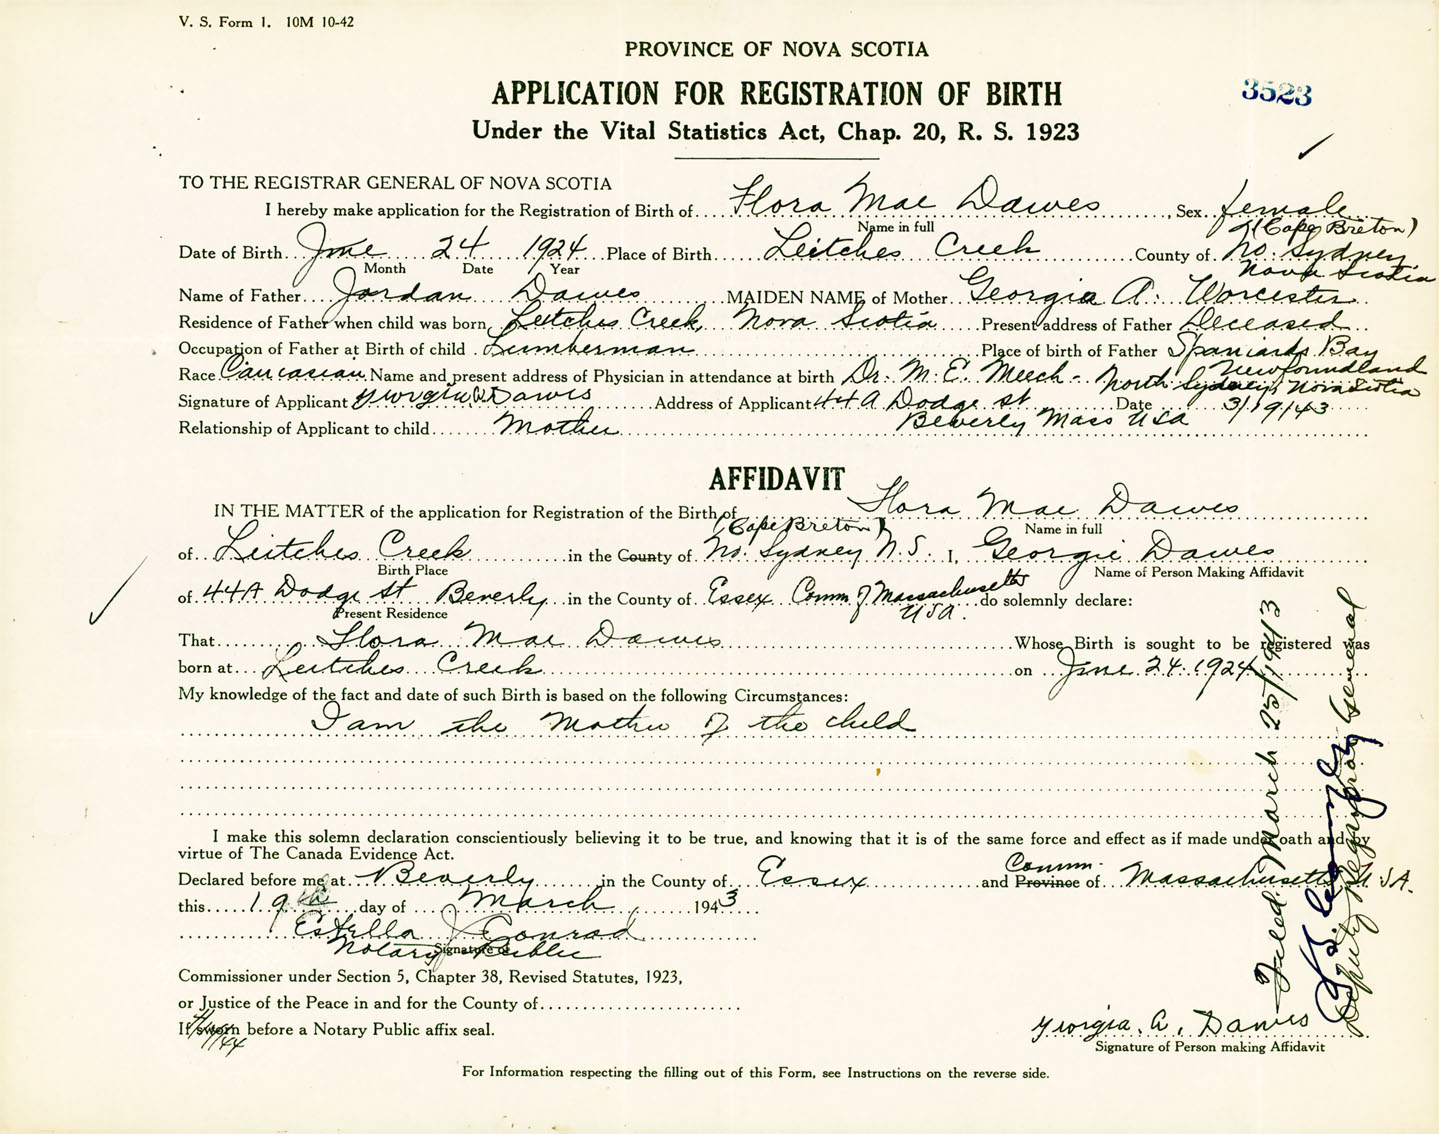 V. S. Form 1. 10M 10-42
PROVINCE OF NOVA SCOTIA
APPLICATION FOR REGISTRATION OF BIRTH
3523
Under the Vital Statistics Act, Chap. 20, R. S. 1923
TO THE REGISTRAR GENERAL OF NOVA SCOTIA
I hereby make application for the Registration of Birth of Flora Mae Dawes, Sex female
Name in full
(Cape Breton)
Date of Birth June 24 1924 Place of Birth Leitches Creek County of No. Sydney
Month Date Year
Nova Scotia
Name of Father Jordan Dawes MAIDEN NAME of Mother Georgia A. Worcester
Residence of Father when child was born, Leitches Creek, Nova Scotia Present address of Father Deceased
Occupation of Father at Birth of child Lumberman Place of birth of Father Spaniards Bay
Newfoundland
Race Caucasian Name and present address of Physician in attendance at birth Dr. M. E. Meech - North Sydney, Nova Scotia
Signature of Applicant Georgia A Dawes Address of Applicant 44A Dodge St Date 3/19/43
Beverly Mass USA
Relationship of Applicant to child Mother
AFFIDAVIT
IN THE MATTER of the application for Registration of the Birth of Flora Mae Dawes
Name in full
(Cape Breton)
of Leitches Creek in the County of No. Sydney N.S. I, Georgie Dawes
Birth Place Name of Person Making Affidavit
of 44A Dodge St Beverly in the County of Essex Comm of Massachusetts do solemnly declare:
USA.
Present Residence
That Flora Mae Dawes Whose Birth is sought to be registered was
born at Leitches Creek on June 24. 1924
My knowledge of the fact and date of such Birth is based on the following Circumstances:
I am the Mother of the child
I make this solemn declaration conscientiously believing it to be true, and knowing that it is of the same force and effect as if made under oath and by
virtue of The Canada Evidence Act.
Comm.
Declared before me at Beverly in the County of Essex and Province of Massachusetts USA.
this 19th day of March, 1943
Estella J Conrad
Notary Public
Signature of
Commissioner under Section 5, Chapter 38, Revised Statutes, 1923,
or Justice of the Peace in and for the County of
If sworn before a Notary Public affix seal.
Georgia. A. Dawes
Signature of Person making Affidavit
For Information respecting the filling out of this Form, see Instructions on the reverse side.
Filed: March 25/1943
Deputy Registrar General